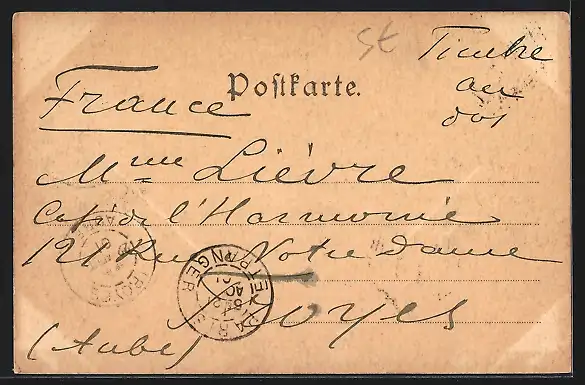 St
Timbre
au
dos
Postkarte.
France
Mme Lièvre
Café de l'Harmonie
121 Rue Notre Dame
Troyes
(Aube)
PARIS ETRANGER
TROYES